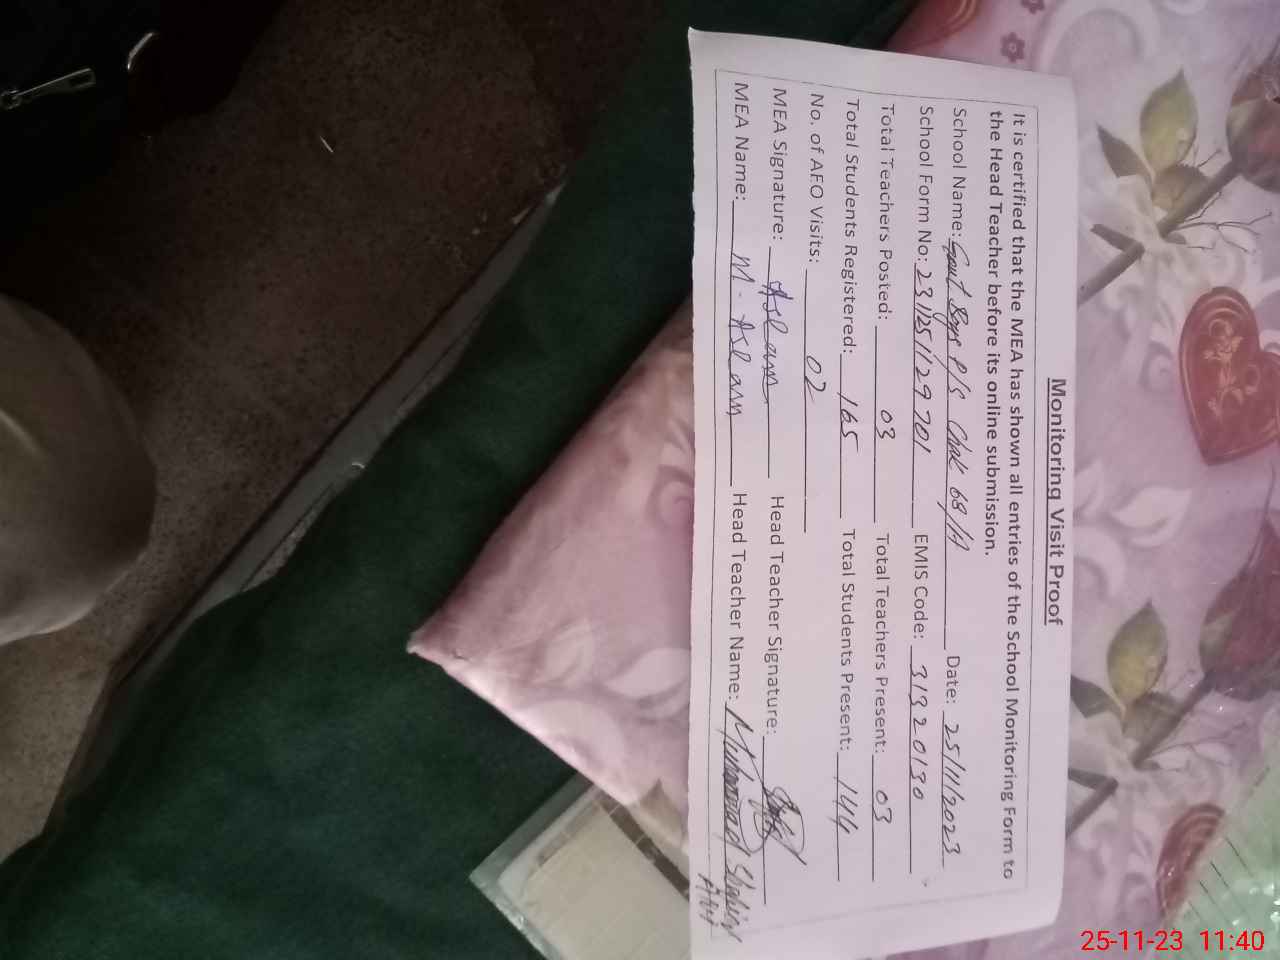 Monitoring Visit Proof
It is certified that the MEA has shown all entries of the School Monitoring Form to
the Head Teacher before its online submission.
School Name: Govt Boys P/S Chak 68/A Date: 25/11/2023
School Form No: 231125112970 1 EMIS Code: 31320190
Total Teachers Posted: 03 Total Teachers Present: 03
Total Students Registered: 165 Total Students Present: 144
No. of AEO Visits: 02
MEA Signature: Aslam Head Teacher Signature:
MEA Name: M. Aslam Head Teacher Name: Muhammad
25-11-23 11:40